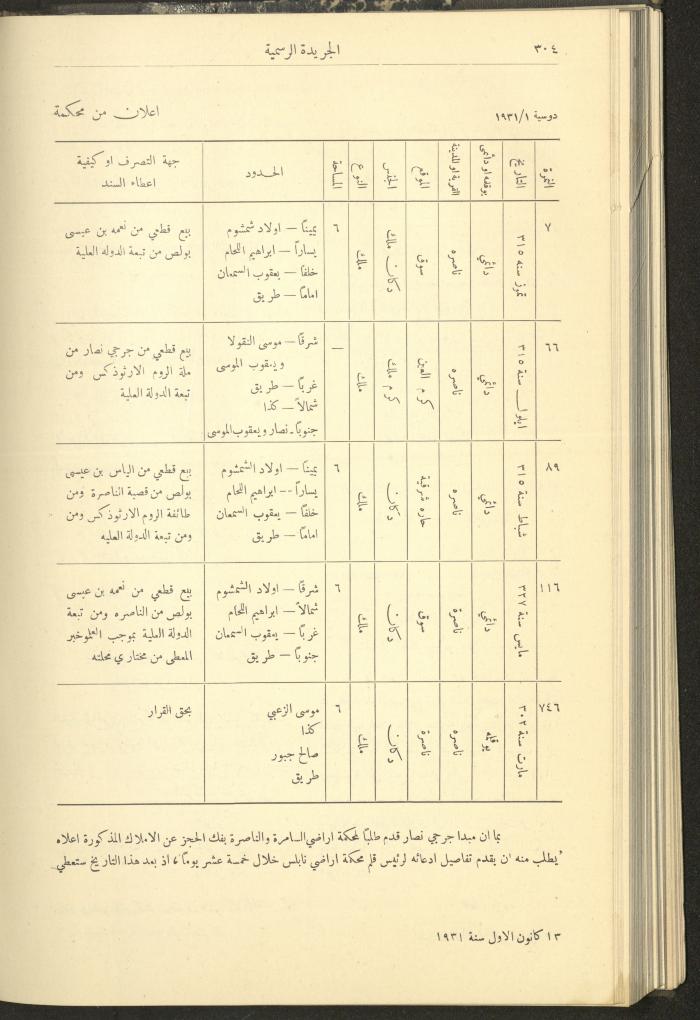 ٣٠٤
الجريدة الرسمية
دوسية ١٩٣١/١
اعلان من محكمة
النمرة
التاريخ
يوقلمه او دائمي
القرية او المدينة
الموقع
الجنس
النوع
المساحة
الحدود
جهة التصرف او كيفية
اعطاء السند
٧
تموز سنه ٣١٥
دائمي
ناصره
سوق
دكان ملك
ملك
٦
يميناً — اولاد شمشوم
يساراً — ابراهيم اللحام
خلفاً — يعقوب السمعان
اماماً — طريق
بيع قطعي من نعمه بن عيسى
بولص من تبعة الدوله العلية
٦٦
ايلول سنة ٣١٥
دائمي
ناصره
كرم العين
كرم ملك
ملك
—
شرقاً — موسى النقولا
ويعقوب الموسى
غرباً — طريق
شمالاً — كذا
جنوباً ـ نصار ويعقوب الموسى
بيع قطعي من جرجي نصار من
ملة الروم الارثوذكس ومن
تبعة الدولة العلية
٨٩
شباط سنة ٣١٥
دائمي
ناصره
حاره شرقية
دكان
ملك
٦
يميناً — اولاد الشمشوم
يساراً -- ابراهيم اللحام
خلفاً — يعقوب السمعان
اماماً — طريق
بيع قطعي من الياس بن عيسى
بولص من قصبة الناصرة ومن
طائفة الروم الارثوذكس ومن
ومن تبعة الدولة العليه
١١٦
مايس سنة ٣٢٧
دائمي
ناصرة
سوق
دكان
ملك
٦
شرقاً — اولاد الشمشوم
شمالاً — ابراهيم اللحام
غرباً — يعقوب السمعان
جنوباً — طريق
بيع قطعي من نعمه بن عيسى
بولص من الناصره ومن تبعة
الدولة العلية بموجب العلموخبر
المعطى من مختاري محلته
٧٤٦
مارت سنة ٣٠٢
يوقلمه
ناصره
ناصرة
دكان
ملك
٦
موسى الزعبي
كذا
صالح جبور
طريق
بحق القرار
بما ان مبدا جرجي نصار قدم طلباً لمحكمة اراضي السامرة والناصرة بفك الحجز عن الاملاك المذكورة اعلاه
يطلب منه ان يقدم تفاصيل ادعائه لرئيس قلم محكمة اراضي نابلس خلال خمسة عشر يوماً، اذ بعد هذا التاريخ ستعطي
١٣ كانون الاول سنة ١٩٣١